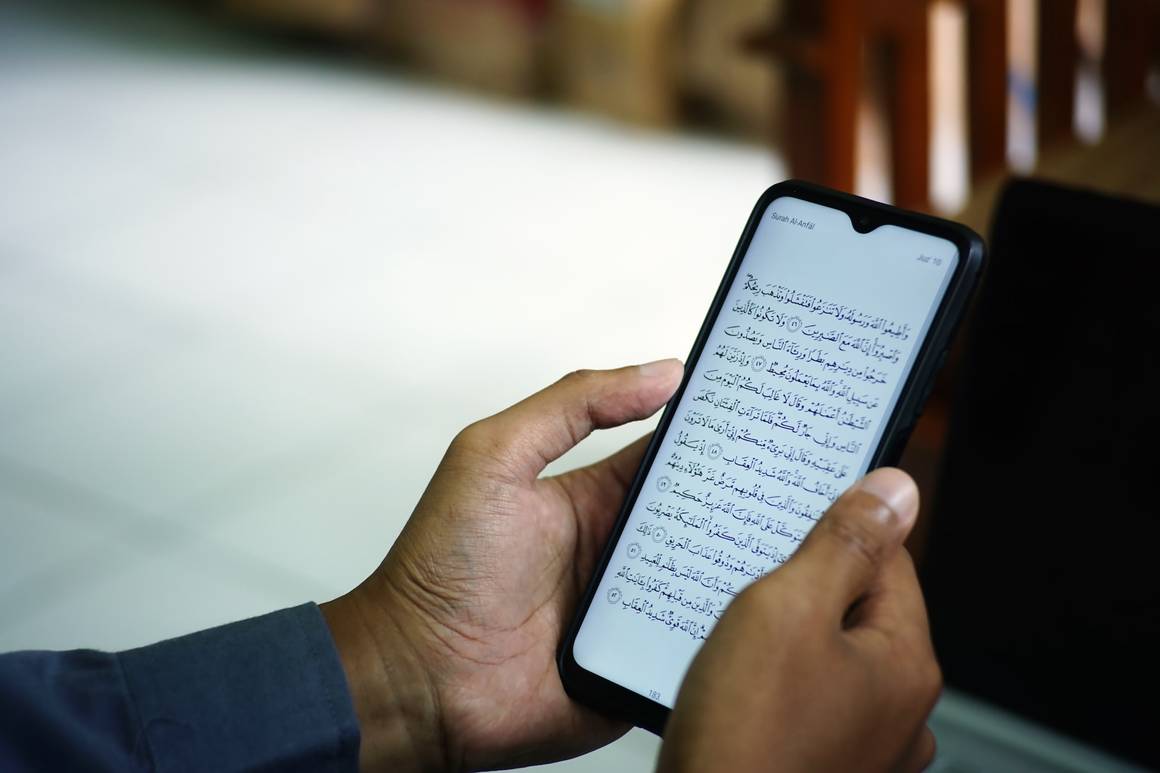 Surah Al-Anfāl
Juz' 10
وَأَطِيعُوا۟ ٱللَّهَ وَرَسُولَهُۥ وَلَا تَنَٰزَعُوا۟ فَتَفْشَلُوا۟ وَتَذْهَبَ رِيحُكُمْ ۖ
وَٱصْبِرُوٓا۟ ۚ إِنَّ ٱللَّهَ مَعَ ٱلصَّٰبِرِينَ ٤٦ وَلَا تَكُونُوا۟ كَٱلَّذِينَ
خَرَجُوا۟ مِن دِيَٰرِهِم بَطَرًا وَرِئَآءَ ٱلنَّاسِ وَيَصُدُّونَ
عَن سَبِيلِ ٱللَّهِ ۚ وَٱللَّهُ بِمَا يَعْمَلُونَ مُحِيطٌ ٤٧ وَإِذْ زَيَّنَ لَهُمُ
ٱلشَّيْطَٰنُ أَعْمَٰلَهُمْ وَقَالَ لَا غَالِبَ لَكُمُ ٱلْيَوْمَ مِنَ
ٱلنَّاسِ وَإِنِّى جَارٌ لَّكُمْ ۖ فَلَمَّا تَرَآءَتِ ٱلْفِئَتَانِ نَكَصَ
عَلَىٰ عَقِبَيْهِ وَقَالَ إِنِّى بَرِىٓءٌ مِّنكُمْ إِنِّىٓ أَرَىٰ مَا لَا تَرَوْنَ
أَخَافُ ٱللَّهَ ۚ وَٱللَّهُ شَدِيدُ ٱلْعِقَابِ ٤٨ إِذْ يَقُولُ
وَٱلَّذِينَ فِى قُلُوبِهِم مَّرَضٌ غَرَّ هَٰٓؤُلَآءِ دِينُهُمْ ۗ
عَلَى ٱللَّهِ فَإِنَّ ٱللَّهَ عَزِيزٌ حَكِيمٌ ٤٩
إِذْ يَتَوَفَّى ٱلَّذِينَ كَفَرُوا۟ ۙ ٱلْمَلَٰٓئِكَةُ يَضْرِبُونَ
وَذُوقُوا۟ عَذَابَ ٱلْحَرِيقِ ٥٠ ذَٰلِكَ
وَأَنَّ ٱللَّهَ لَيْسَ بِظَلَّٰمٍ لِّلْعَبِيدِ ٥١
وَٱلَّذِينَ مِن قَبْلِهِمْ ۚ كَفَرُوا۟ بِـَٔايَٰتِ ٱللَّهِ
إِنَّ ٱللَّهَ قَوِىٌّ شَدِيدُ ٱلْعِقَابِ ٥٢
183